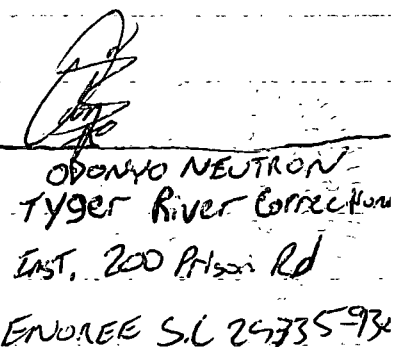 ODONYO NEUTRON
Tyger River Correction
INST. 200 Prison Rd
ENOREE S.C 29335-93